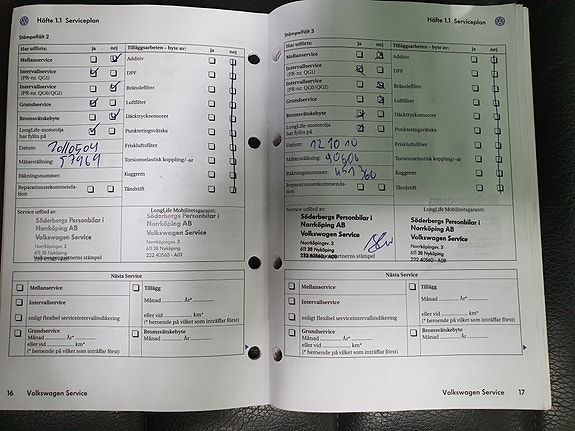 Häfte 1.1 Serviceplan
Stämpelfält 2
Har utförts: ja nej
Tilläggsarbeten – byte av: nej
Mellanservice
Additiv
Intervallservice
(PR-nr. QG1)
DPF
Intervallservice
(PR-nr. QG0/QG2)
Bränslefilter
Grundservice
Luftfilter
Bromsvätskebyte
Däcktrycksensorer
LongLife-motorolja
har fyllts på
Punkteringsvätska
Datum:
Friskluftsfilter
Mätarställning: 57969
Torsionselastisk koppling/-ar
Räkningsnummer:
Kuggrem
Reparationsrekommenda-
tion
Tändstift
Service utförd av:
LongLife Mobilitetsgaranti:
Söderbergs Personbilar i
Norrköping AB
Volkswagen Service
Norrköpingsv. 3
611 38 Nyköping
222 40560 - A01
Söderbergs Personbilar i
Norrköping AB
Volkswagen Service
Norrköpingsv. 3
611 38 Nyköping
222 40560 - A01
Nästa Service
Mellanservice
Intervallservice
enligt flexibel serviceintervallindikering
Grundservice
Månad År*
eller vid km*
(* beroende på vilket som inträffar först)
Tillägg
Månad År*
eller vid km*
(* beroende på vilket som inträffar först)
Bromsvätskebyte
Månad År
16 Volkswagen Service
Häfte 1.1 Serviceplan
Stämpelfält 3
Har utförts: ja nej
Tilläggsarbeten – byte av: ja nej
Mellanservice
Additiv
Intervallservice
(PR-nr. QG1)
DPF
Intervallservice
(PR-nr. QG0/QG2)
Bränslefilter
Grundservice
Luftfilter
Bromsvätskebyte
Däcktrycksensorer
LongLife-motorolja
har fyllts på
Punkteringsvätska
Datum: 121010
Friskluftsfilter
Mätarställning:
Torsionselastisk koppling/-ar
Räkningsnummer:
Kuggrem
Reparationsrekommenda-
tion
Tändstift
Service utförd av:
LongLife Mobilitetsgaranti:
Söderbergs Personbilar i
Norrköping AB
Volkswagen Service
Norrköpingsv. 3
611 38 Nyköping
222 40560 - A01
Söderbergs Personbilar i
Norrköping AB
Volkswagen Service
Norrköpingsv. 3
611 38 Nyköping
222 40560 - A01
Nästa Service
Mellanservice
Intervallservice
enligt flexibel serviceintervallindikering
Grundservice
Månad År*
eller vid km*
(* beroende på vilket som inträffar först)
Tillägg
Månad År*
eller vid km*
(* beroende på vilket som inträffar först)
Bromsvätskebyte
Månad År
Volkswagen Service 17